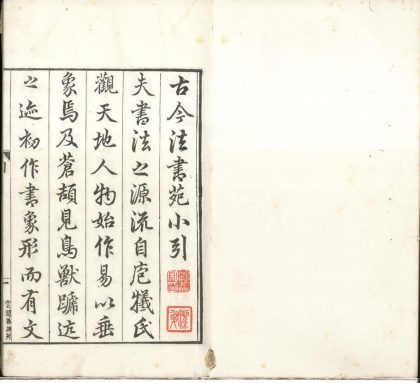 古今法書苑小引
夫書法之源流自庖犧氏
觀天地人物始作易以垂
象焉及蒼頡見鳥獸蹏迒
之迹初作書象形而有文